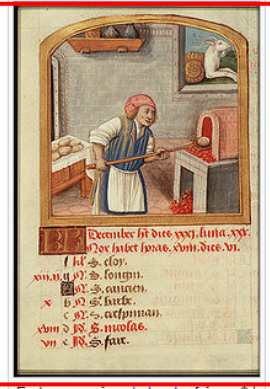 KL December ht dies xxxi. luna. xxx.
Nox habet horas. xviii. dies. vi.
f kl' S. eloy.
xiii. n g N S. longin.
A N S. cancien.
x b N S. barbe.
c N S. crespinian.
xviii d N S. nicolas.
vii e N S. fare.